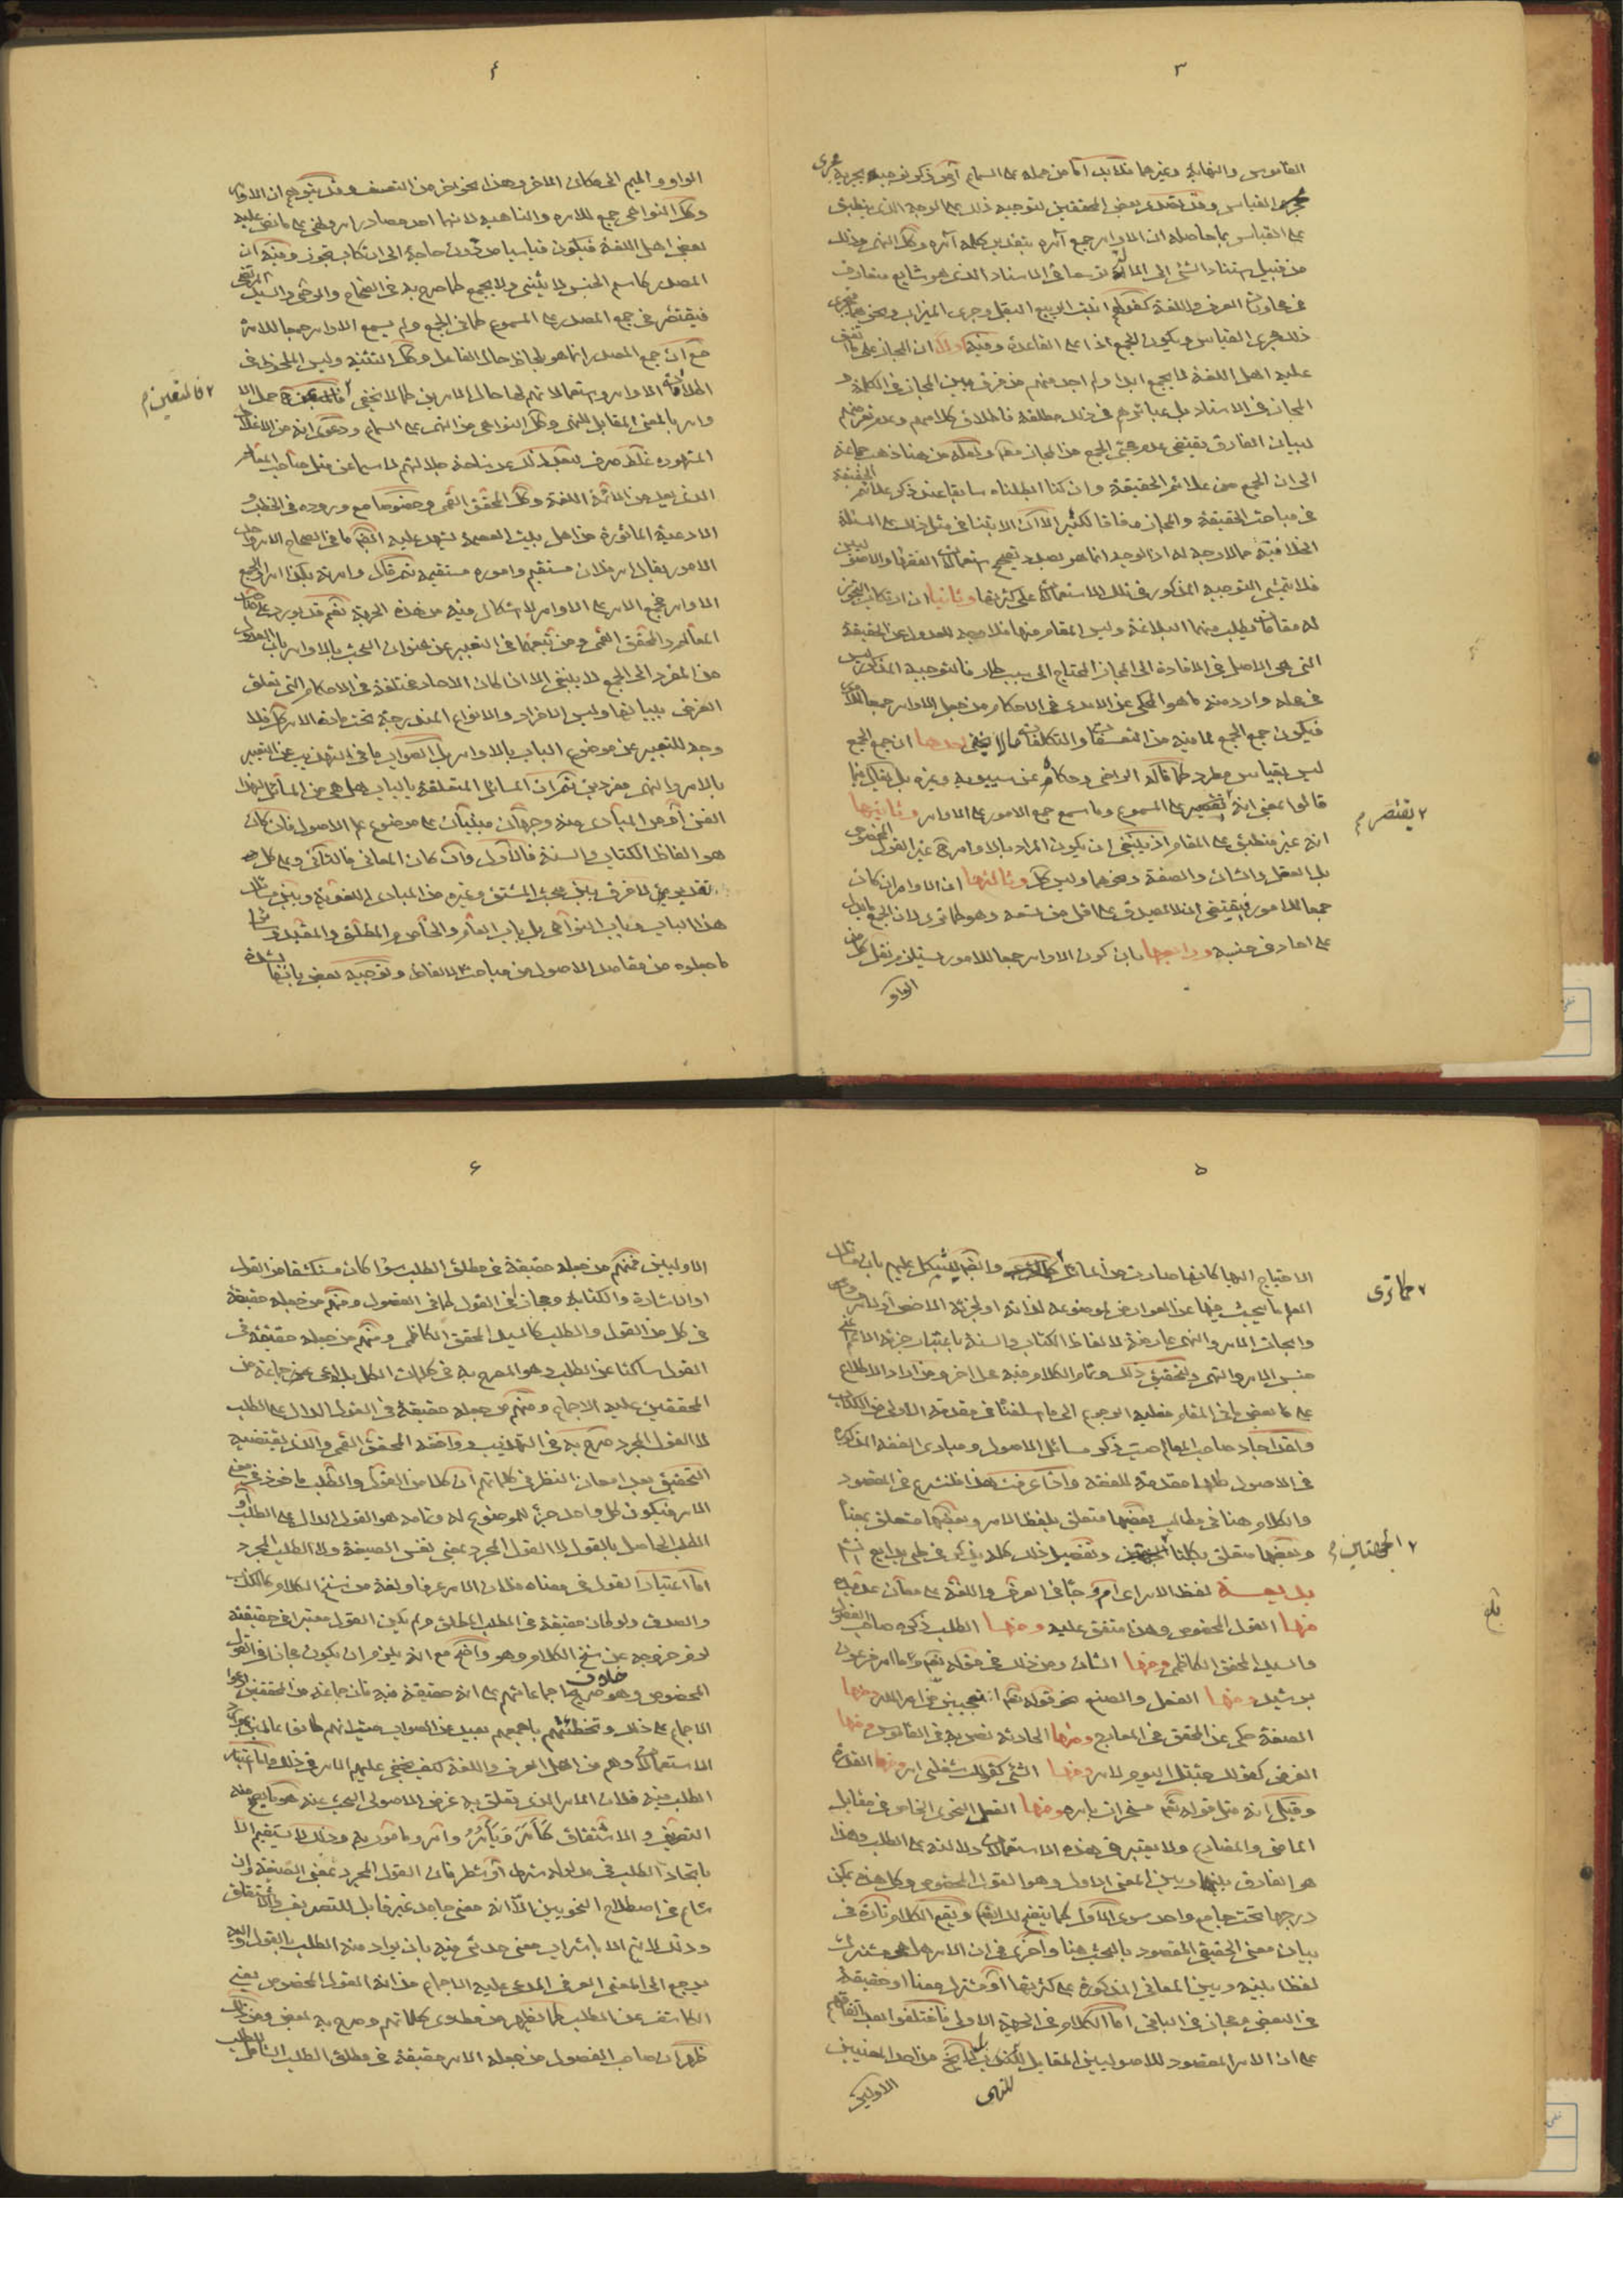 ٣
القاموس والنهاية وغيرهما فلا بد اما من حمله على السماع او من ذكر توجيه يجريه مجرى
القياس وقد تصدى بعض المحققين لتوجيه ذلك على الوجه الذى ينطبق
على القياس بما حاصله ان الاوامر جمع آمره بتقدير كلمة آمره وكك النهى وذلك
من قبيل استناد الشئ الى الآلة توسعا فى الاسناد الذى هو شايع متعارف
فى محاورات العرف واللغة كقولهم انبت الربيع البقل وجرى الميزاب ونحوهما
ذلك مجرى القياس ويكون الجمع اذا على القاعدة وفيه اولا ان المجاز على ما اتفق
عليه اهل اللغة لا يجمع ابدا ولم اجد منهم من فرق بين المجاز فى الكلمة و
المجاز فى الاسناد بل عبائرهم فى ذلك مطلقة فاطلاق كلامهم وعدم تعرضهم
لبيان الفارق يقتضى عدم مجئ الجمع من المجاز مطلقا ولعله من هنا ذهب جماعة
الى ان الجمع من علائم الحقيقة وان كنا ابطلناه سابقا عند ذكر علائم الحقيقة
فى مباحث الحقيقة والمجاز وفاقا لكثير الا ان الابتناء فى مثل ذلك على المسئلة
الخلافية مما لا وجه له اذ الموجه انما هو بصدد تصحيح استعمالات الفقهاء والاصوليين
فلا يتمشى التوجيه المذكور فى تلك الاستعمالات على كثرتها وثانيا ان ارتكاب التجوز
له مقامات يطلب منها البلاغة وليس المقام منها فلا وجه للعدول عن الحقيقة
التى هى الاصل فى الافادة الى المجاز المحتاج الى سبب طار فالتوجيه المذكور ليس
فى محله واردء منه ما هو المحكى عن الآمدى فى الاحكام من جعل الاوامر جمعا للامور
فيكون جمع الجمع لما فيه من التعسفات والتكلفات ما لا يخفى احدها ان جمع الجمع
ليس بقياس مطرد كما قاله الرضى وحكاه عن سيبويه وغيره بل يقال فيما
قالوا بمعنى انه يقتصر على المسموع وما سمع جمع الامور على الاوامر وثانيها
٢ يقتصر م
انه غير منطبق على المقام اذ ينبغى ان يكون المراد بالاوامر ح غير القول المخصوص
بل الفعل والشان والصفة ونحوهما وليس كك وثالثها ان الاوامر ان كان
جمعا للامور فيقتضى ان لا يصدق على اقل من تسعة وهو كما ترى لان الجمع ما يدل
على احاد فى جنسه ورابعها بان كون الاوامر جمعا للامور يستلزم نقل كل من
الواو
٤
الواو والميم الى مكان الاخر وهذا نحو اخر من التعسف وقد يتوهم ان الاوامر
وكك النواهى جمع للامره والناهيه لانهما احد مصادر امر ونهى على ما نص عليه
بعض اهل اللغة فيكون قياسيا من دون حاجة الى ارتكاب تجوز وفيه ان
المصدر كاسم الجنس لا يثنى ولا يجمع كما صرح به فى الصحاح والرضى والسيد المرتضى
فيقتصر فى جمع المصدر على المسموع كما فى الجمع ولم يسمع الاوامر جمعا للامر
مع ان جمع المصدر انما هو بلحاظ حال الفاعل وكك التثنية وليس الملحوظ فى
اطلاقات الاوامر واستعمالاتهم لها حال الامرين كما لا يخفى حمل الا
٢ فالمتعين م
وامر بالمعنى المقابل للنهى وكك النواهى من النهى على السماع ودعوى انه من الاغلاط
المشهوره غلط صرف لبعد ذلك عن ساحة جلالتهم لا سيما عن مثل صاحب المعالم
الذى يعد من ائمة اللغة وكك المحقق القمى وخصوصا مع وروده فى الخطب و
الادعية الماثورة من اهل بيت العصمة يشهد عليه ايضا ما فى الصحاح الامر واحد
الامور يقال امر فلان مستقيم واموره مستقيمة ثم قال وامرته بكذا امرا والجمع
الاوامر فجمع الامر على الاوامر لا اشكال فيه من هذه الجهة نعم قد يورد على صاحب
المعالم والمحقق القمى ومن تبعهما فى التعبير عن عنوان البحث بالاوامر بان العدول
من المفرد الى الجمع لا ينبغى الا اذا كان الاحاد مختلفة فى الاحكام التى تعلق
الغرض ببيانها وليس الافراد والانواع المندرجة تحت مادة الامر كك فلا
وجه للتعبير عن موضوع الباب بالاوامر بل الصواب ما فى التهذيب عن التعبير
بالامر والنهى مفردين ثم ان المسائل المتعلقة بالباب هل هى من المسائل لهذا
الفن او من المبادى منه وجهان مبنيان على موضوع علم الاصول فان كان
هو الفاظ الكتاب والسنة فالاول وان كان المعانى فالثانى وعلى كل
تقدير لا فرق بين بحث المشتق وغيره من المبادى اللغوية وبين مسائل
هذا الباب وباب النواهى بل باب العام والخاص والمطلق والمقيد وسائر
ما جعلوه من مقاصد الاصول من مباحث الالفاظ وتوجيه بعض بانها لشدة
٥
الاحتياج اليها كانها صارت من المسائل وايضا يشكل عليهم بان مسائل
٢ كما ترى
العلم ما يبحث فيها عن العوارض لموضوعه لذاته او لجزئه الاخص او لامر
وابحاث الامر والنهى عارضة لالفاظ الكتاب والسنة باعتبار جزئه الاعم
جنس الامر والنهى وتحقيق ذلك وتمام الكلام فيه محل اخر ومن اراد الاطلاع
على ما يعض فى المقام فعليه الرجوع الى ما سلفنا فى مقدمة الاولى من الكتاب
ولقد اجاد صاحب المعالم حيث ذكر مسائل الاصول ومبادى الفقه المذكورة
فى الاصول كلها مقدمة للفقه واذا عرفت هذا فلنشرع فى المقصود
والكلام هنا فى مطالب بعضها متعلق بلفظ الامر وبعضها متعلق بمعنا
وبعضها متعلق بكلتا وتفصيل ذلك كله يذكر فى طى بدايع
٢ الجهتين م
بديعة لفظ الامر اى ا م ر جاء فى العرف واللغة على معان عديده
منها القول المخصوص وهذا متفق عليه ومنها الطلب ذكره صاحب الفصول
والسيد المحقق الكاظمى ومنها الشان ومن ذلك فى قوله تعالى وما امر فرعون
برشيد ومنها الفعل والصنع نحو قوله تعالى اتعجبين من امر الله ومنها
الصفة حكى عن المحقق فى المعارج ومنها الحادثة نص به فى القاموس ومنها
الغرض كقولك جئتك اليوم لامر ومنها الشئ كقولك شغلنى امر ومنها القدرة
وقيل انه مثل قوله تعالى مسخرات بامره ومنها الفعل النحوى الخاص فى مقابل
الماضى والمضارع ولا يعتبر فى هذه الاستعمالات دلالته على الطلب وهذا
هو الفارق بينها وبين المعنى الاول وهو القول المخصوص وكل هذه يمكن
درجها تحت جامع واحد سوى الاول كما يتضح لك ايضا ويقع الكلام تارة فى
بيان معنى الحقيقى المقصود بالبحث هنا واخرى فى ان الامر هل هو مشترك
لفظا بينه وبين المعانى المذكورة على كثرتها او مشترك معنا او حقيقة
فى البعض ومجاز فى الباقى اما الكلام فى الجهة الاولى فاختلفوا بعد اتفاقهم
على ان الامر المقصود للاصوليين المقابل للنهى لا يخرج من احد المعنيين
للنهى
الاولين
بلغ
٦
الاولين فمنهم من جعله حقيقة فى مطلق الطلب سواء كان منكشفا من القول
او الاشارة والكتابة ومجازا فى القول كما فى الفصول ومنهم من جعله حقيقة
فى كل من القول والطلب كالسيد المحقق الكاظمى ومنهم من جعله حقيقة فى
القول ساكتا عن الطلب وهو المصرح به فى كلمات الكل بل ادعى جماعة من
المحققين عليه الاجماع ومنهم من جعله حقيقة فى القول الدال على الطلب
لا القول المجرد صرح به فى التهذيب ووافقه المحقق القمى والذى يقتضيه
التحقيق بعد امعان النظر فى كلماتهم ان كلا من القول والطلب ماخوذ فى معنى
الامر فيكون كل واحد جزء للموضوع له وتمامه هو القول الدال على الطلب او
الطلب الحاصل بالقول لا القول المجرد بمعنى نفس الصيغة ولا الطلب المجرد
اما اعتبار القول فى معناه فلان الامر عرفا ولغة من سنخ الكلام كالكذب
والصدق ولو كان حقيقة فى الطلب المطلق ولم يكن القول معتبرا فى حقيقته
لزم خروجه عن سنخ الكلام وهو واضح مع انه يلزم ان يكون مجازا فى القول
المخصوص وهو خلاف صريح اجماعاتهم على انه حقيقة فيه فان جماعة من المحققين ادعوا
الاجماع على ذلك وتخطئتهم باجمعهم بعيد عن الصواب حيث انهم كانوا عالمين بموارد
الاستعمالات وهم من اهل العرف واللغة كيف يخفى عليهم الامر فى ذلك واما اعتبار
الطلب فيه فلان الامر الذى يتعلق به غرض الاصولى البحث عنه هو ما يصح منه
التصريف والاشتقاق كَاَمَرَ وَيَأمُرُ وآمر ومامور به وذلك لا يستقيم الا
باتخاذ الطلب فى مدلوله شرطا او شطرا فان القول المجرد بمعنى الصيغة وان
شاع فى اصطلاح النحويين الا انه معنى جامد غير قابل للتصريف والاشتقاق
وذلك لا يتم الا باشراب معنى حدثى فيه بان يراد منه الطلب بالقول
يرجع الى المعنى العرفى المدعى عليه الاجماع من انه القول المخصوص يعنى
الكاشف عن الطلب كما يظهر من مطاوى كلماتهم وصرح به بعض ومن ذلك
ظهر ان صاحب الفصول من جعله الامر حقيقة فى مطلق الطلب الشامل للطلب